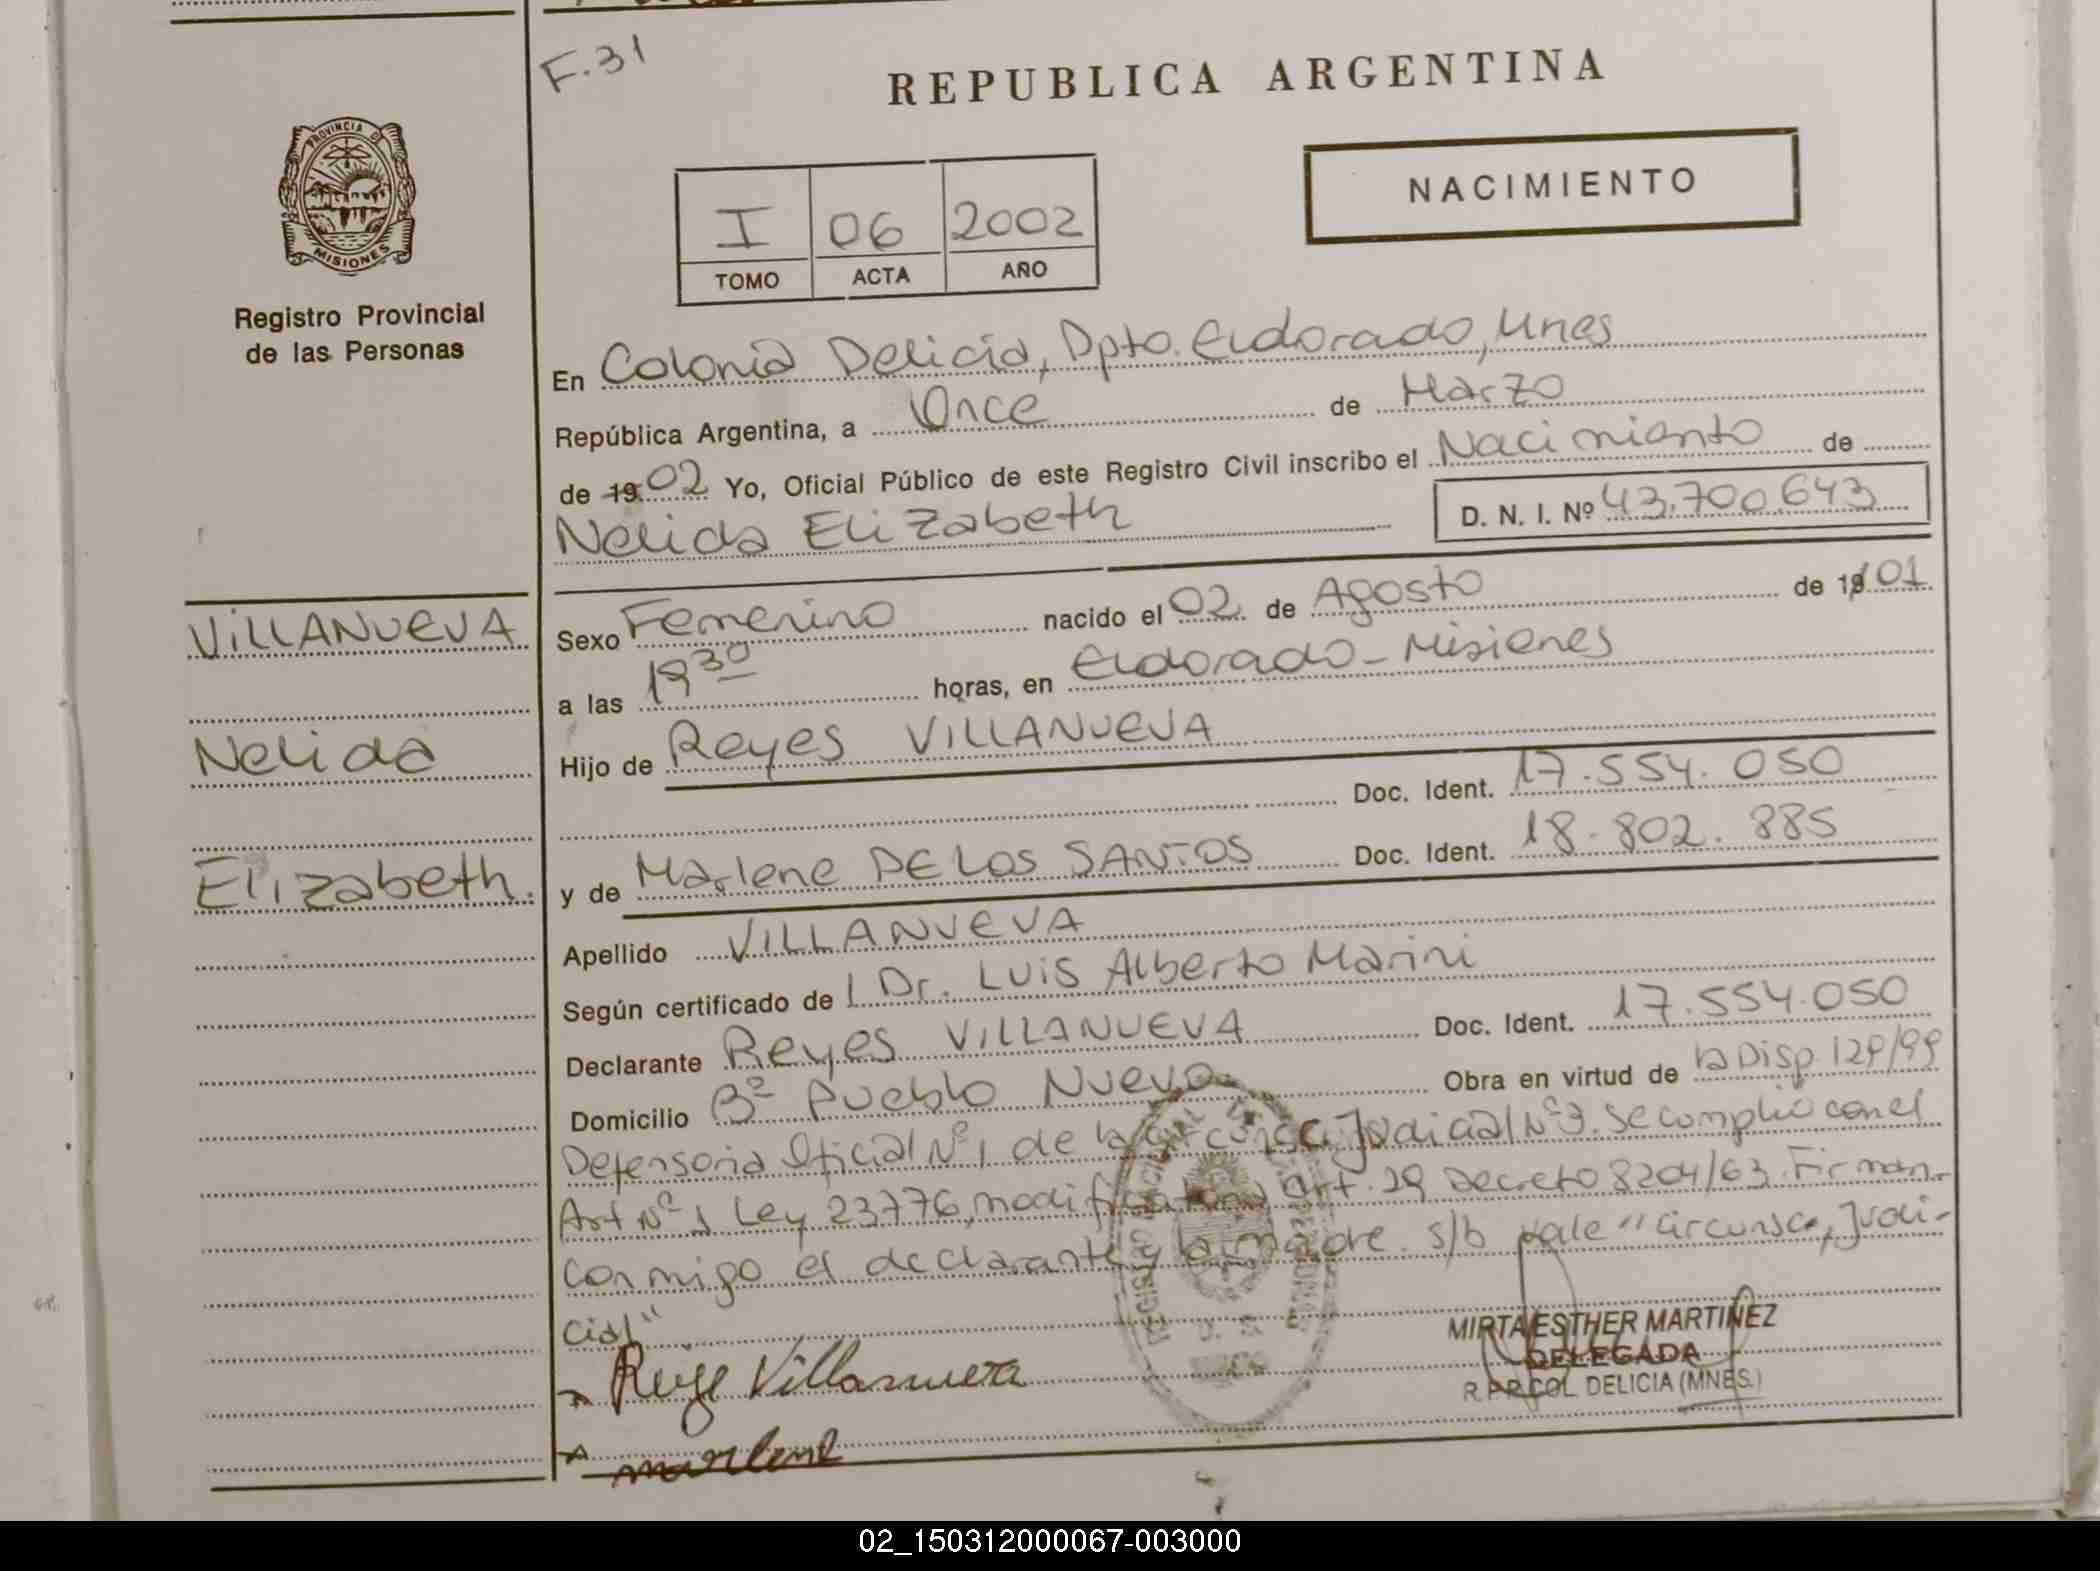 F.31
REPUBLICA ARGENTINA
PROVINCIA D
MISIONES
NACIMIENTO
I 06 2002
TOMO ACTA AÑO
Registro Provincial
de las Personas
En Colonia Delicia, Dpto. Eldorado, Mnes
República Argentina, a Once de Marzo
de 19 02 Yo, Oficial Público de este Registro Civil inscribo el Nacimiento de
Nelida Elizabeth D. N. I. Nº 43.700.643
VILLANUEVA
Nelida
Elizabeth.
Sexo Femenino nacido el 02 de Agosto de 19 01
a las 19 30 horas, en Eldorado - Misiones
Hijo de Reyes VILLANUEVA
Doc. Ident. 17.554.050
y de Marlene DE LOS SANTOS Doc. Ident. 18.802.885
Apellido VILLANUEVA
Según certificado de l Dr. Luis Alberto Marini
Declarante Reyes VILLANUEVA Doc. Ident. 17.554.050
Domicilio Bº Pueblo Nuevo Obra en virtud de la Disp. 129/99
Defensoria Oficial Nº 1 de la Circunsc. Judicial Nº 3. Se cumplio con el
Art Nº 1 Ley 23776, modificatoria art. 29 Decreto 8204/63. Firman
conmigo el declarante y la madre. s/b vale "circunsc, Judi-
cial"
Reyes Villanueva
marlene
MIRTA ESTHER MARTINEZ
DELEGADA
R.P.P. COL. DELICIA (MNES.)
02_150312000067-003000